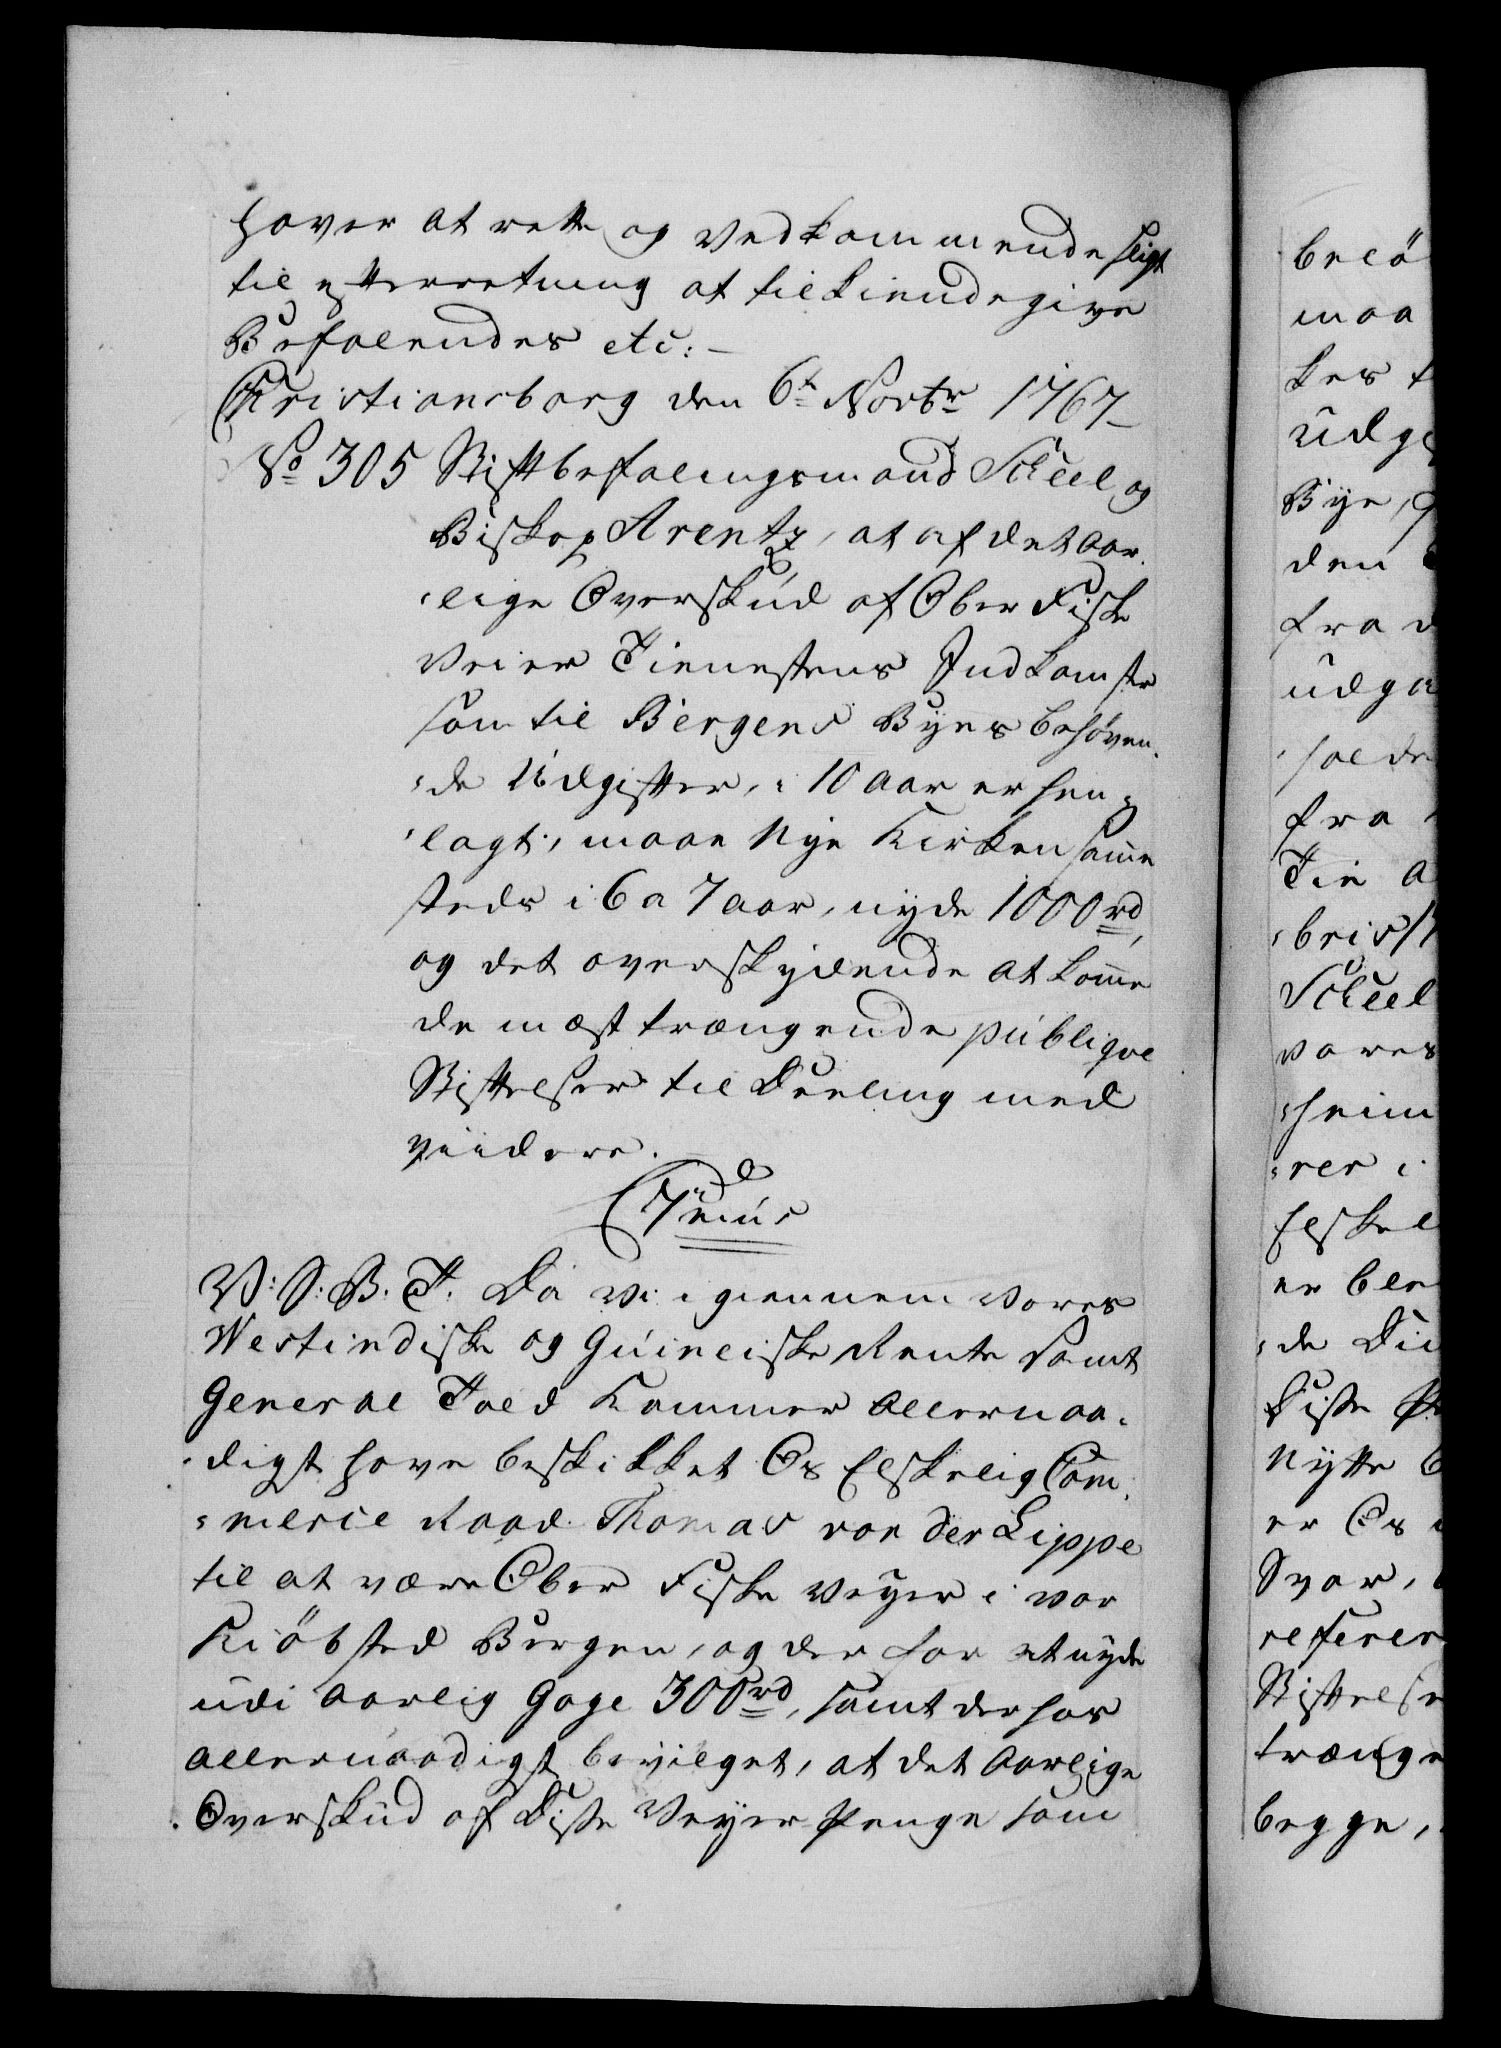 haver at rette og vedkommende sligt
til efterretning at tilkiendegive
Befalendes etc: —
Christiansborg den 6te Novbr 1767
No 305 Stiftbefalingsmand Scheel og
Biskop Arentz, at af det aar-
-lige Overskud af Ober Fiske
Veier Tienestens Indkomster
som til Bergens Byes behøven-
-de Udgifter, i 10 aar er hen-
-lagt, maae Nye Kirken samme
steds i 6 a 7 aar, nyde 1000 rd,
og det overskydende at komme
de mest trængende publiqve
Stiftelser til Deeling med
viidere.
C 7mus
V: S: B. T. Da Vi igiennem Vores
Westindiske og Guineiske Rente samt
General Told Kammer allernaa-
-digst have beskikket Os Elskelig Com-
-merce Raad Thomas von der Lippe
til at være Ober Fiske Veyer i vor
Kiöbsted Bergen, og derfor at nyde
udi aarlig Gage 300 rd, samt derhos
allernaadigst bevilget, at det aarlige
Overskud af Disse Veyer Penge som
beló
maa
kes
udge
Bye,
den
fra
udga
fra
Tie
Scheel
vores
-heim
-rer i
Elskel
er ble
-de
Disse
Nytte
er Os
Svar,
referer
Stiftelse
trænge
begge,